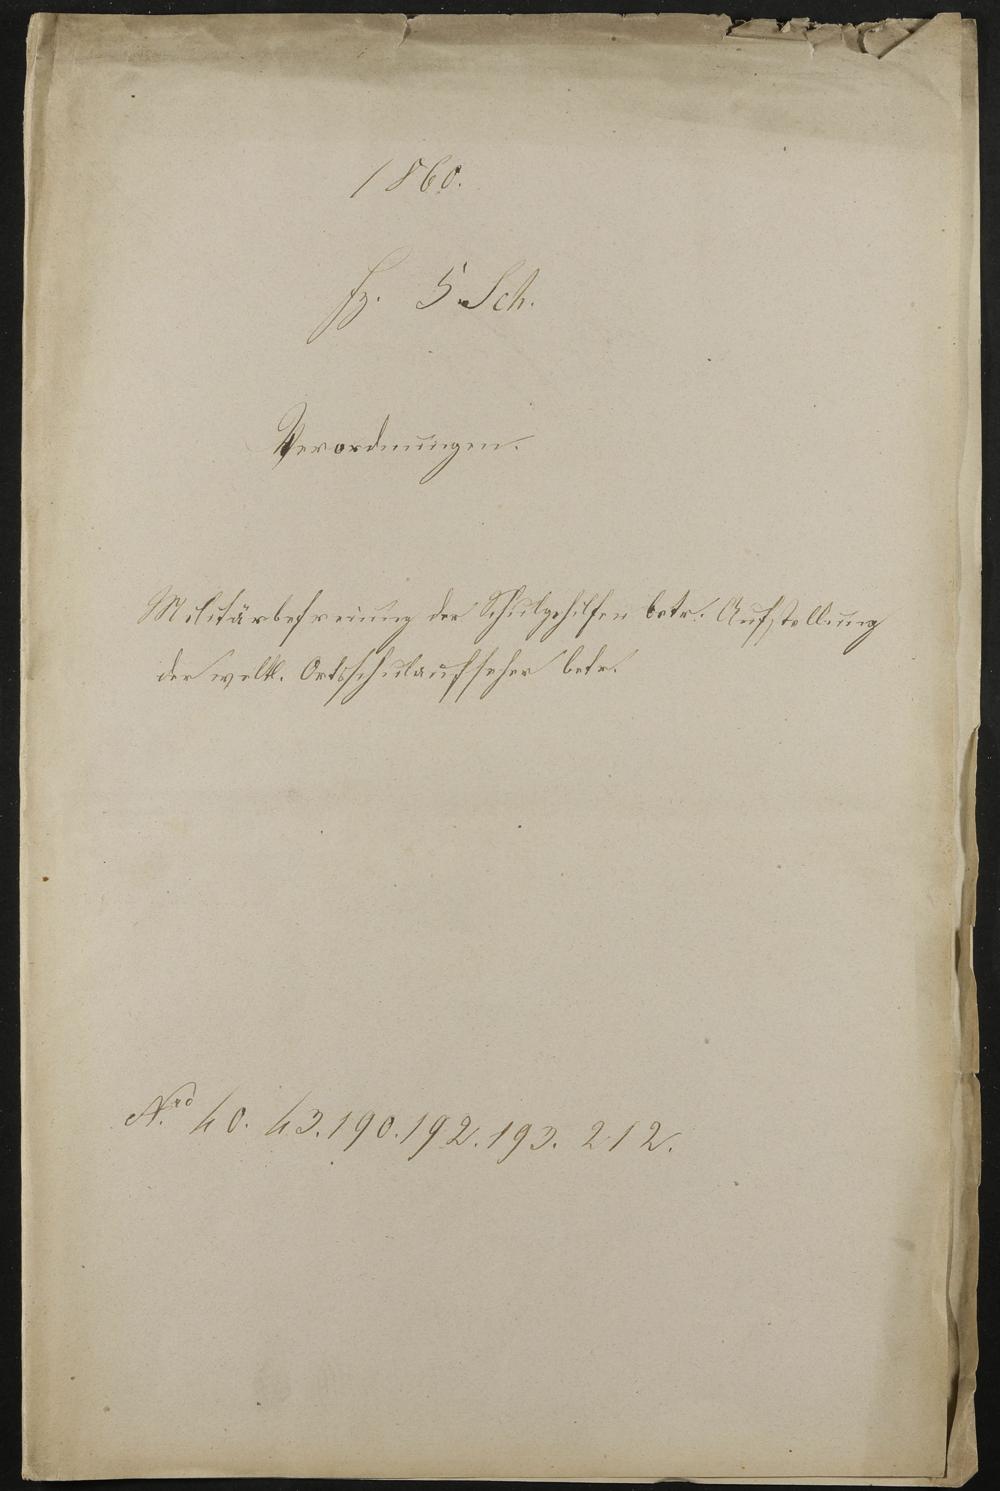 1860.
Fz. 5. Sch.
Verordnungen.
Militärbefreiung der Schulgehilfen betr. Aufstellung
der weltl. Ortsschulaufseher betr.
N.ro 40. 43. 190. 192. 193. 212.